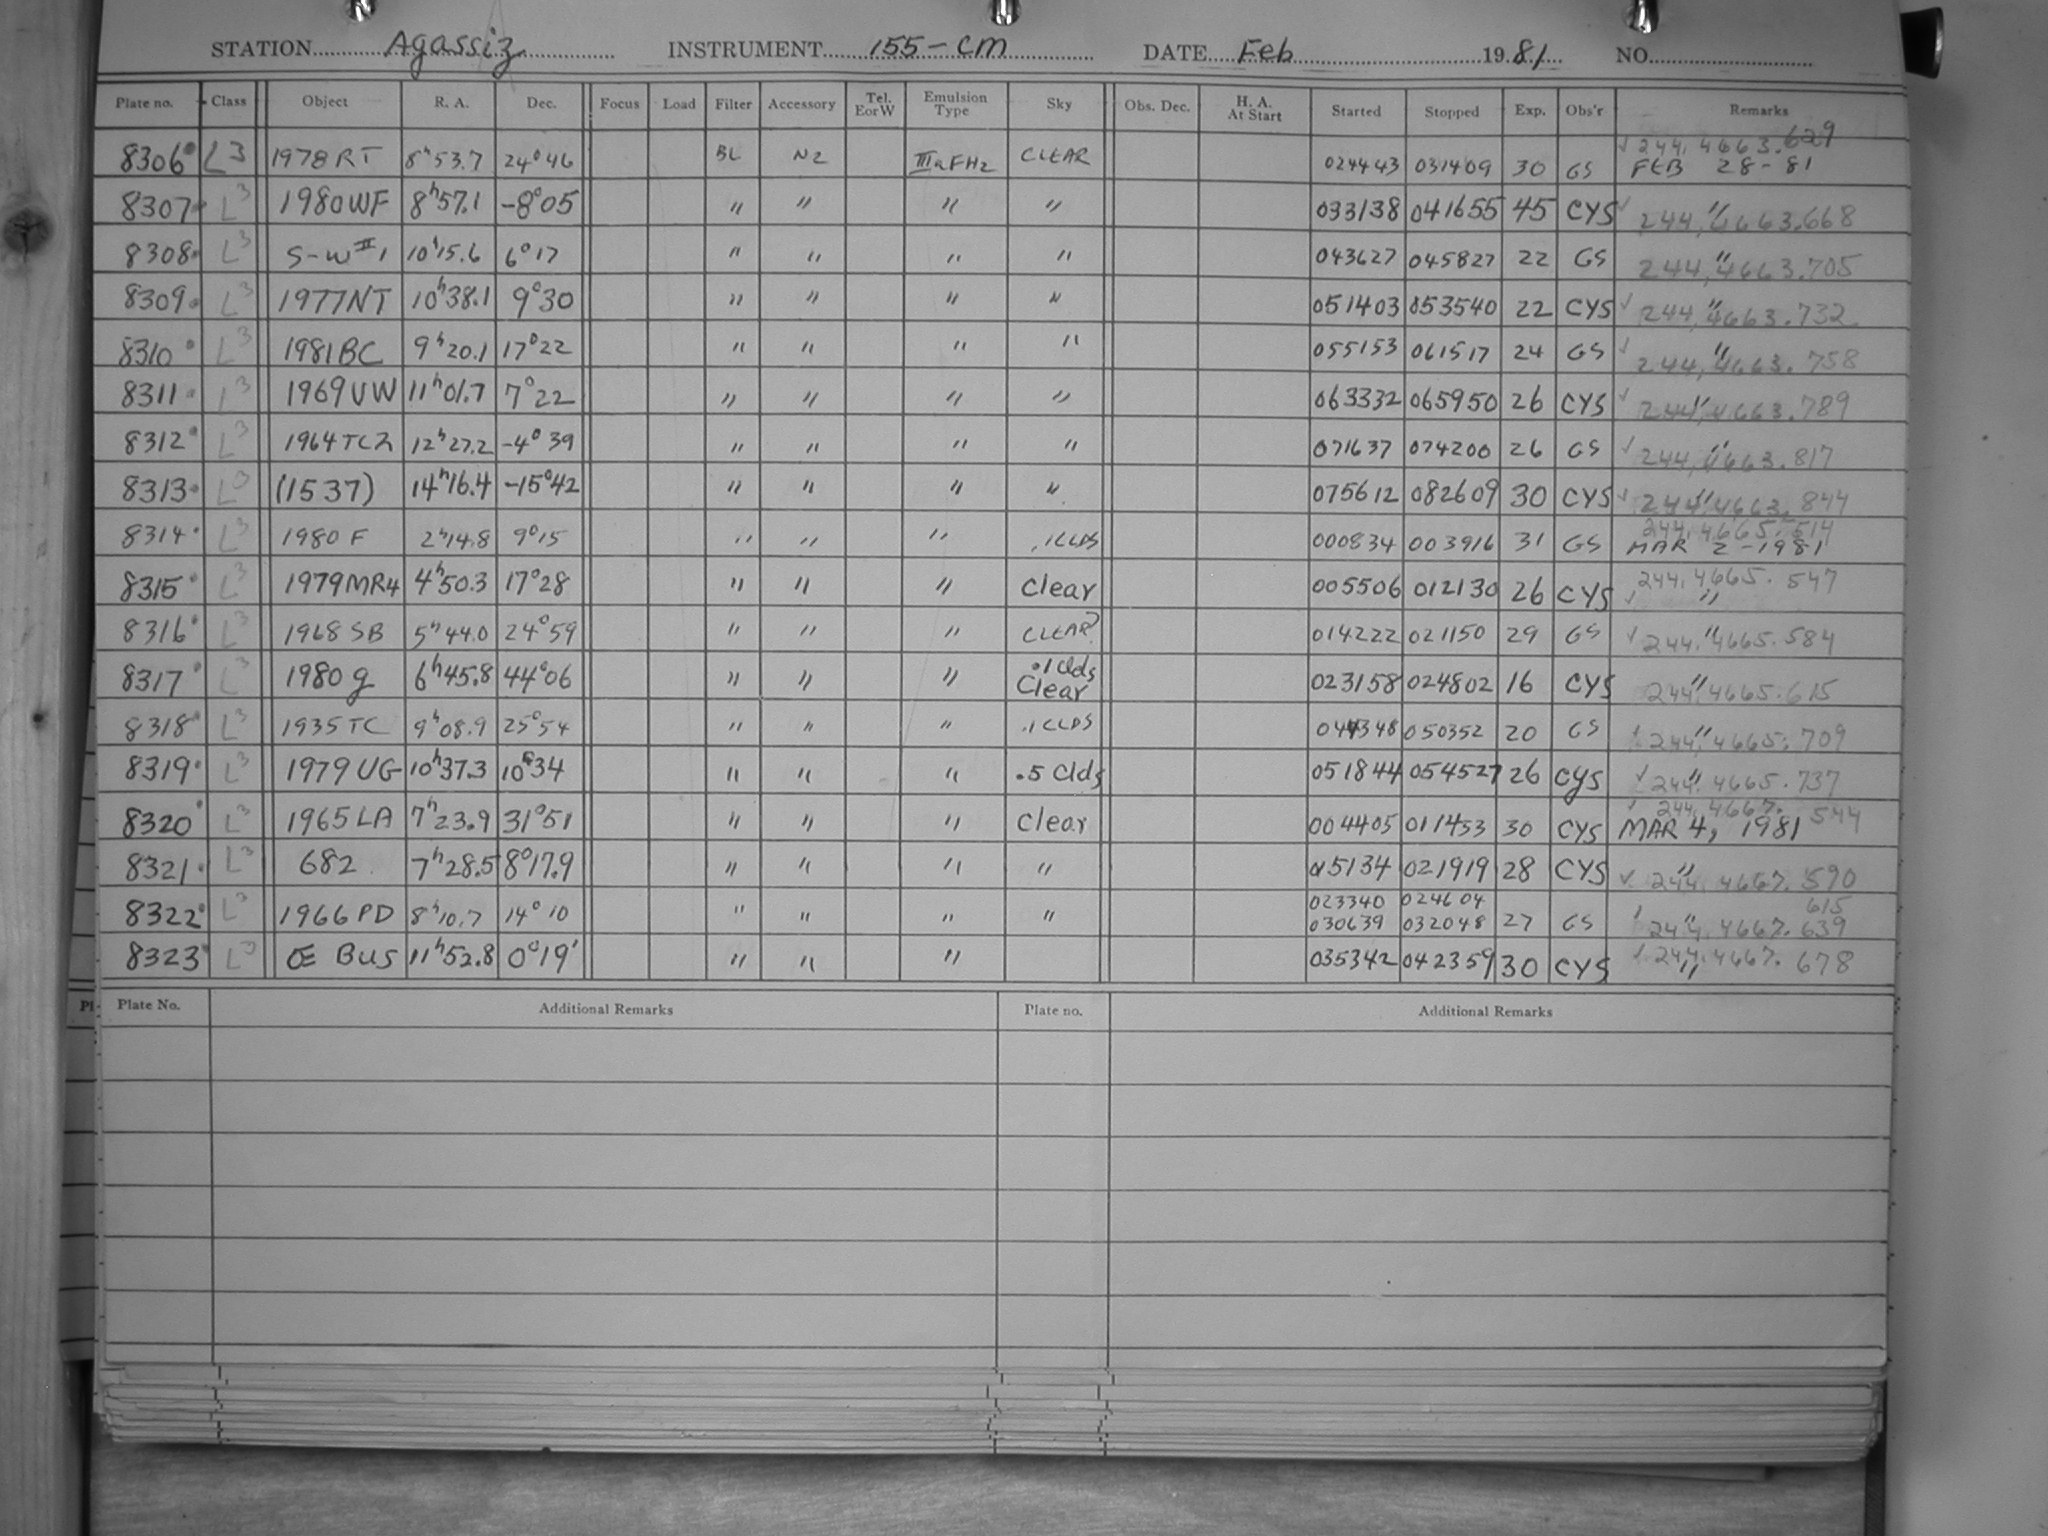 STATION Agassiz INSTRUMENT 155-cm DATE Feb 1981 NO.
Plate no. Class Object R. A. Dec. Focus Load Filter Accessory Tel. EorW Emulsion Type Sky Obs. Dec. H. A. At Start Started Stopped Exp. Obs'r Remarks
244,4663.629
8306 L3 1978 RT 8h53.7 24°46 BL N2 IIIaFH2 CLEAR 024443 031409 30 GS FEB 28-81
8307 L3 1980WF 8h57.1 -8°05 " " " " 033138 041655 45 CYS " 244,4663.668
8308 L3 S-W III 10h15.6 6°17 " " " " 043627 045827 22 GS " 244,4663.705
8309 L3 1977NT 10h38.1 9°30 " " " " 051403 053540 22 CYS " 244,4663.732
8310 L3 1981BC 9h20.1 17°22 " " " " 055153 061517 24 GS " 244,4663.758
8311 L3 1969UW 11h01.7 7°22 " " " " 063332 065950 26 CYS " 244,4663.789
8312 L3 1964TC2 12h27.2 -4°39 " " " " 071637 074200 26 GS " 244,4663.817
8313 L3 (1537) 14h16.4 -15°42 " " " " 075612 082609 30 CYS " 244,4663.844
244,4665.514
8314 L3 1980 F 2h14.8 9°15 " " " .1CLDS 000834 003916 31 GS MAR 2-1981
8315 L3 1979MR4 4h50.3 17°28 " " " Clear 005506 012130 26 CYS " 244,4665.547
8316 L3 1968 SB 5h44.0 24°59 " " " CLEAR? 014222 021150 29 GS " 244,4665.584
.1 Clds
8317 L3 1980 g 6h45.8 44°06 " " " Clear 023158 024802 16 CYS " 244,4665.615
8318 L3 1935 TC 9h08.9 25°54 " " " .1 CLDS 044348 050352 20 GS " 244,4665.709
8319 L3 1979 UG 10h37.3 10°34 " " " .5 Clds 051844 054527 26 CYS " 244,4665.737
244,4667.544
8320 L3 1965 LA 7h23.9 31°51 " " " Clear 004405 011453 30 CYS MAR 4, 1981
8321 L3 682 7h28.5 8°17.9 " " " " 015134 021919 28 CYS " 244,4667.590
023340 024604 615
8322 L3 1966 PD 8h10.7 14°10 " " " " 030639 032048 27 GS " 244,4667.639
8323 L3 Œ Bus 11h52.8 0°19' " " " 035342 042359 30 CYS " 244,4667.678
Plate No. Additional Remarks Plate no. Additional Remarks